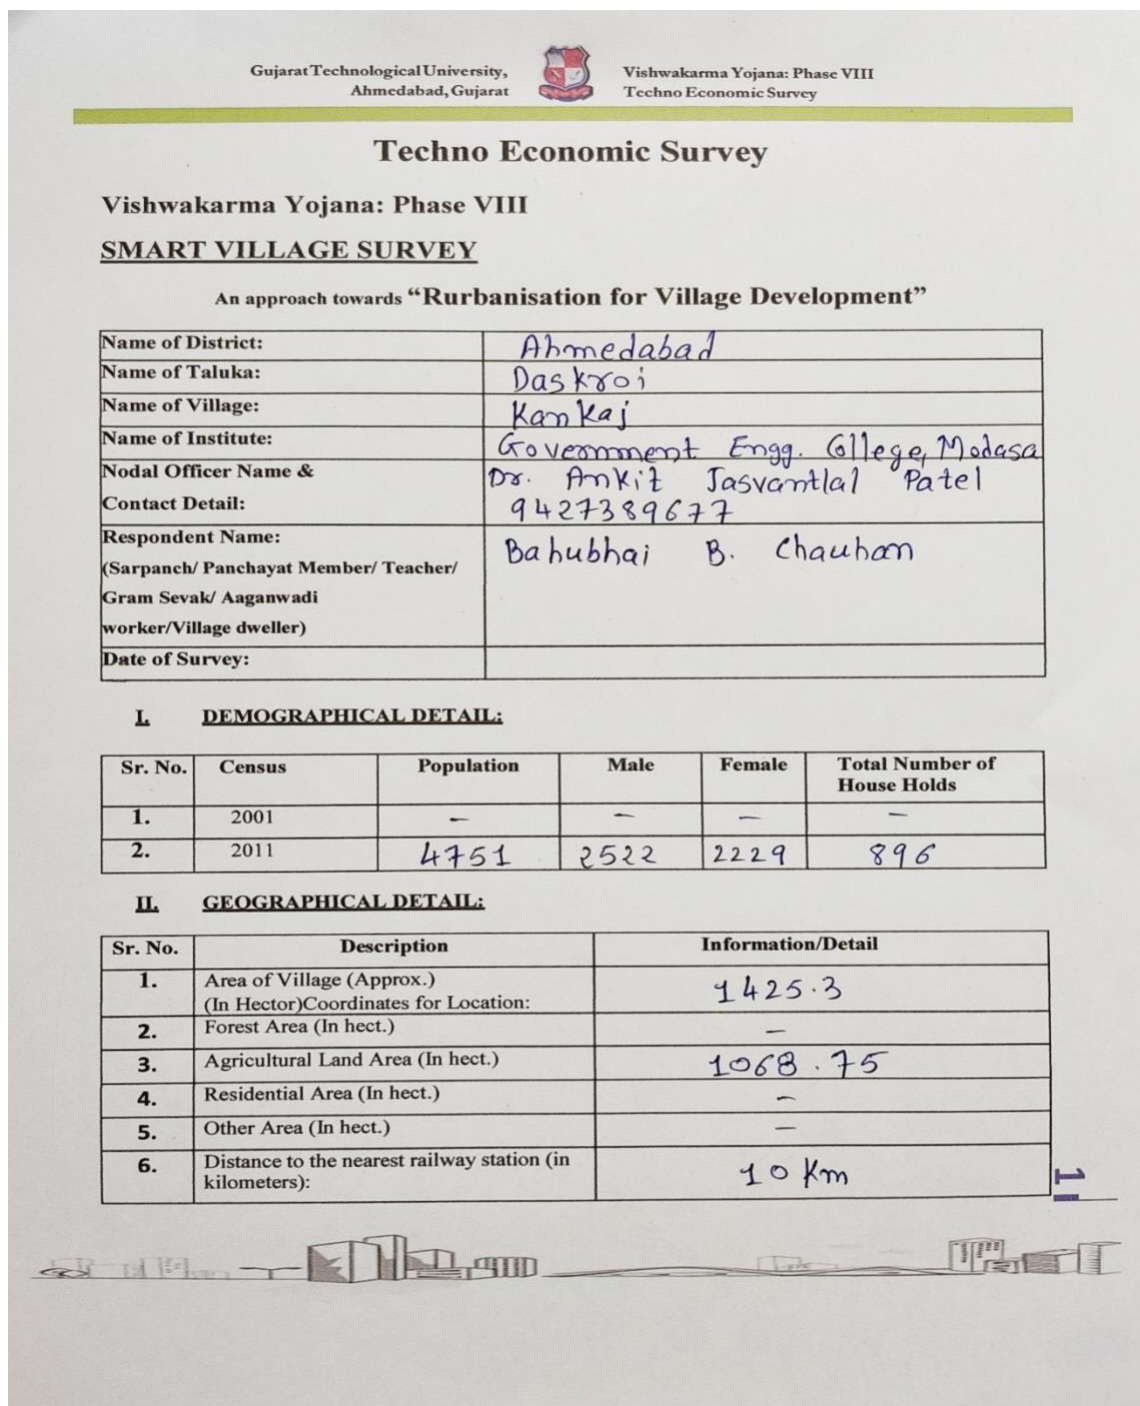 Gujarat Technological University,
Ahmedabad, Gujarat
Vishwakarma Yojana: Phase VIII
Techno Economic Survey
Techno Economic Survey
Vishwakarma Yojana: Phase VIII
SMART VILLAGE SURVEY
An approach towards “Rurbanisation for Village Development”
Name of District: Ahmedabad
Name of Taluka: Daskroi
Name of Village: Kankaj
Name of Institute: Government Engg. College, Modasa
Nodal Officer Name & Dr. Ankit Jasvantlal Patel
Contact Detail: 9427389677
Respondent Name: Bahubhai B. Chauhan
(Sarpanch/ Panchayat Member/ Teacher/
Gram Sevak/ Aaganwadi
worker/Village dweller)
Date of Survey:
I. DEMOGRAPHICAL DETAIL:
Sr. No. Census Population Male Female Total Number of
House Holds
1. 2001 – – – –
2. 2011 4751 2522 2229 896
II. GEOGRAPHICAL DETAIL:
Sr. No. Description Information/Detail
1. Area of Village (Approx.) 1425.3
(In Hector)Coordinates for Location:
2. Forest Area (In hect.) –
3. Agricultural Land Area (In hect.) 1068.75
4. Residential Area (In hect.) –
5. Other Area (In hect.) –
6. Distance to the nearest railway station (in 10 Km
kilometers):
1